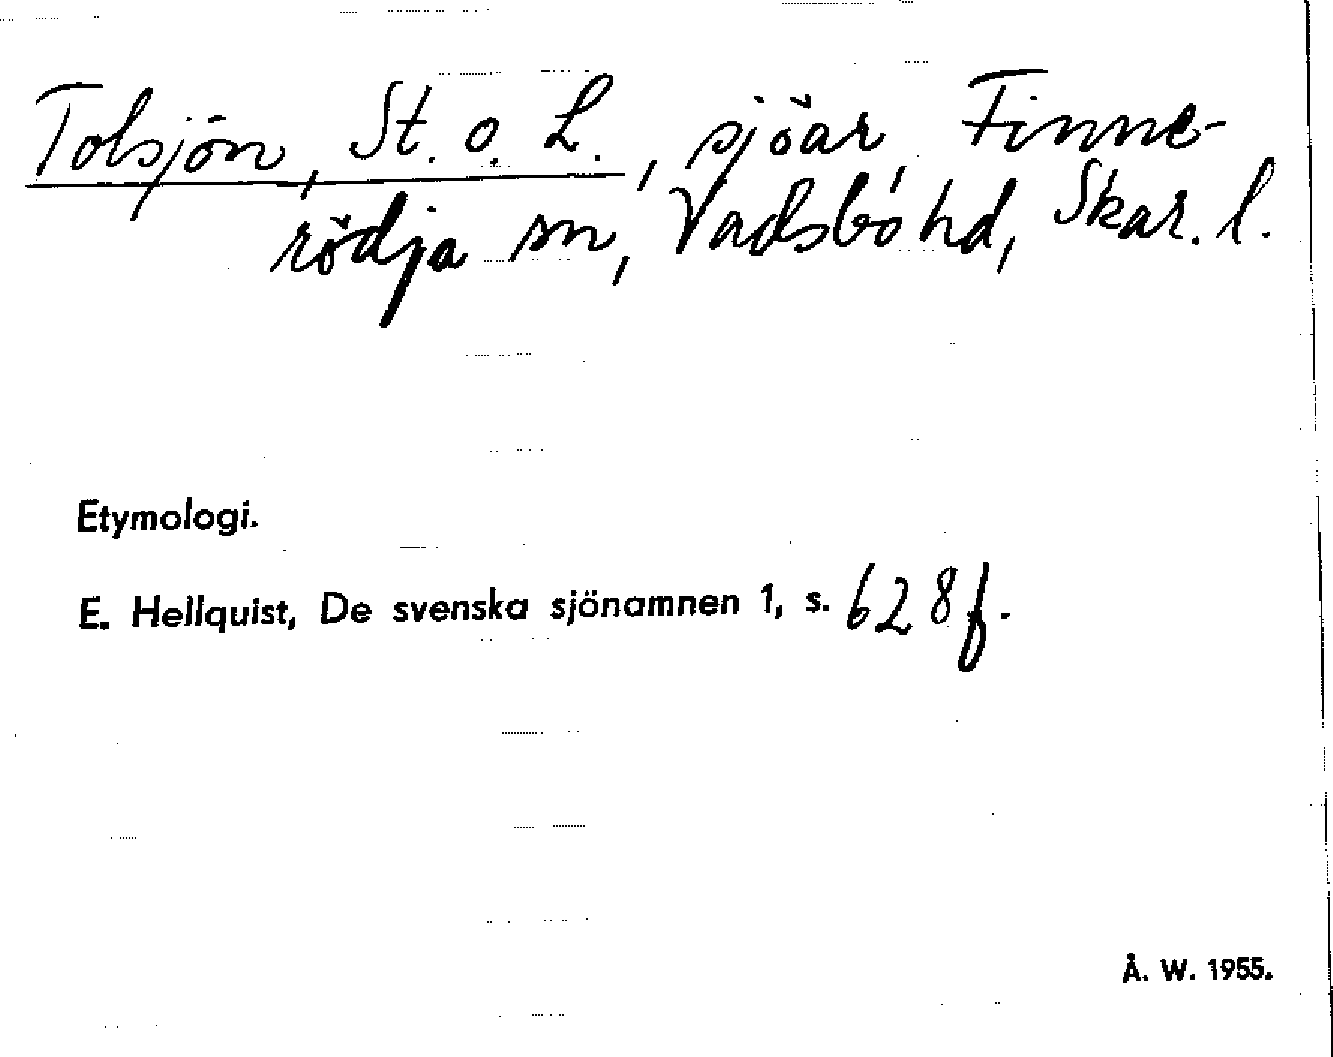 Tolsjön, St. o. L., sjöar, Finne-
rödja sn, Vadsbo hd, Skar. l.
Etymologi.
E. Hellquist, De svenska sjönamnen 1, s. 628 f.
Å. W. 1955.